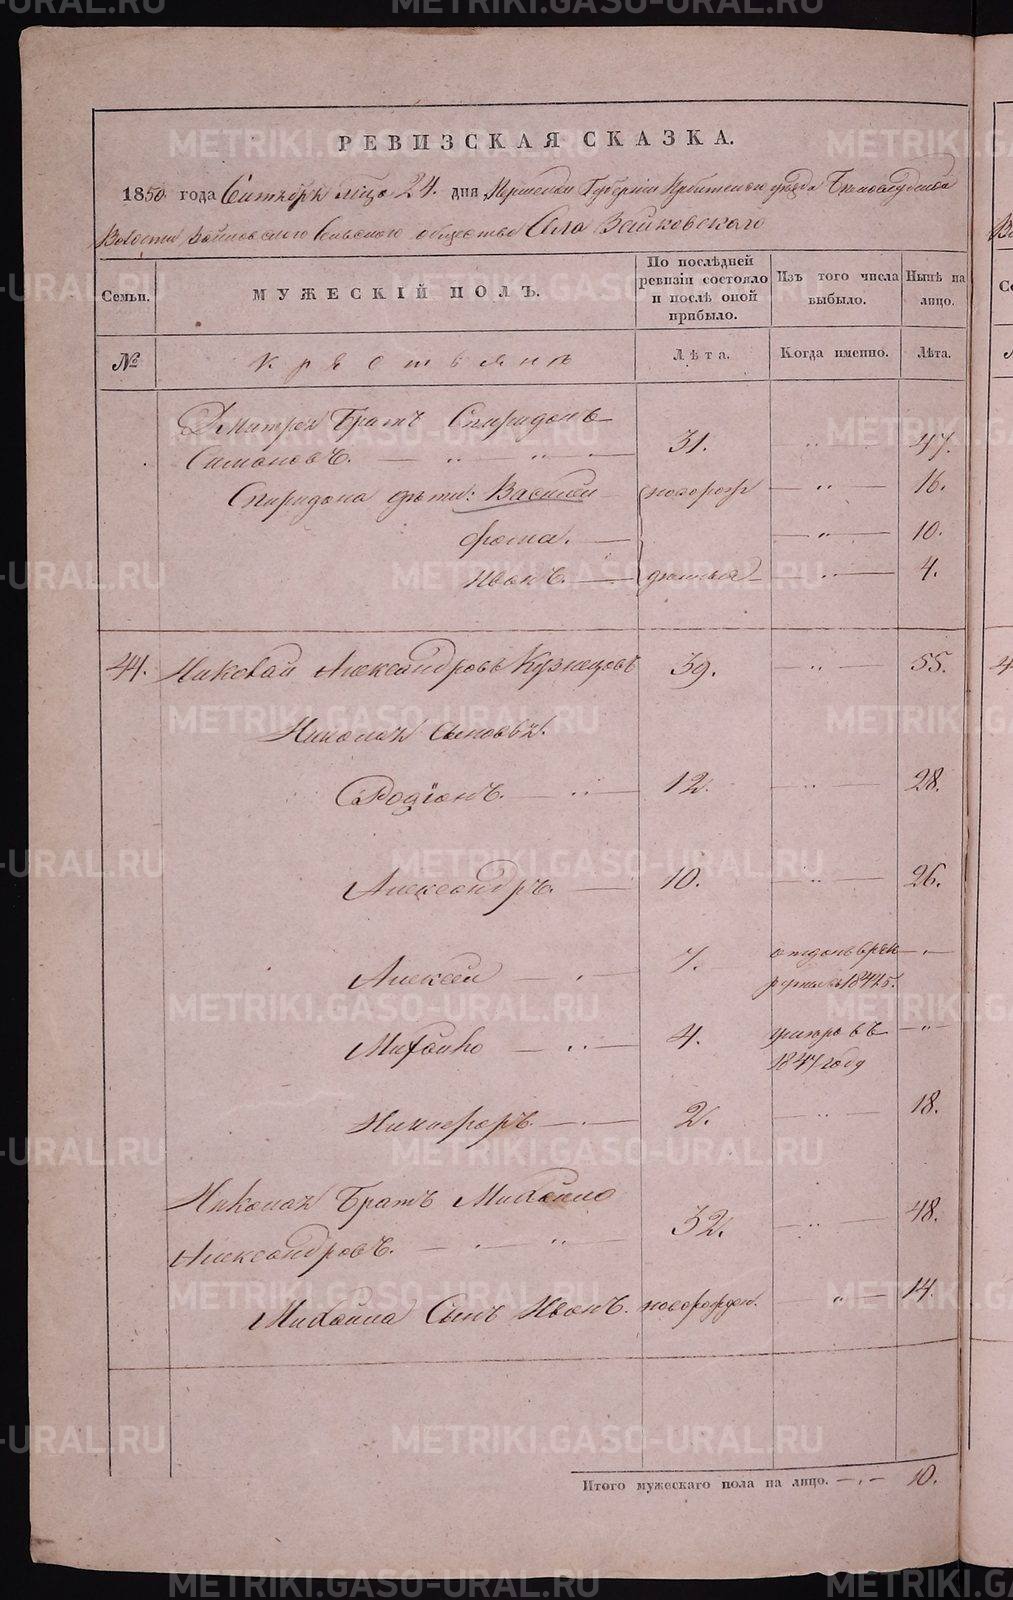 РЕВИЗСКАЯ СКАЗКА.
1850. года Сентября мѣсяца 24. дня, Пермской Губерніи Ирбитскаго уѣзда Бѣлослудской
Волости Зайковскаго Сельскаго общества Села Зайковскаго
Семьи.
МУЖЕСКІЙ ПОЛЪ.
По послѣдней ревизіи состояло и послѣ оной прибыло.
Изъ того числа выбыло.
Нынѣ на лицо.
№
крестьянъ
Лѣта.
Когда именно.
Лѣта.
Дмитрея Братъ Спиридонъ
Симоновъ. 31. 47.
Спиридона дѣти: Василей новорожд 16.
Фома. 10.
Иванъ. 4.
44. Николай Александровъ Кузнецовъ 39. 55.
Николая сыновья.
Родіонъ. 12. 28.
Александръ. 10. 26.
Алексей 7. отданъ в рек
руты въ 184
Михайло 4. умеръ въ
1847 году
Никифоръ. 2. 18.
Николая Братъ Михайло
Александровъ. 32. 48.
Михайла Сынъ Иванъ. новорожден. 14.
Итого мужескаго пола на лицо. 10.
METRIKI.GASO-URAL.RU